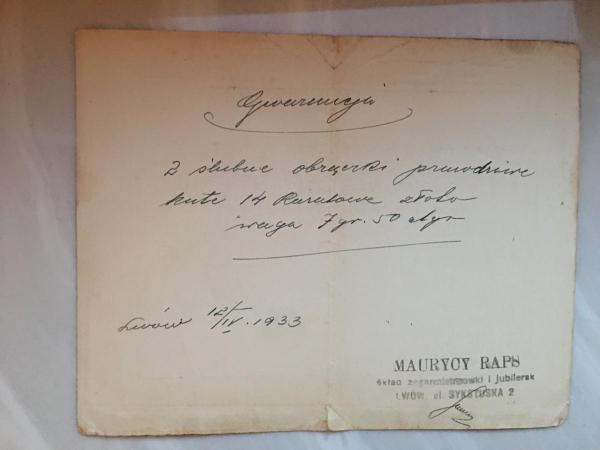 Gwarancja
2 ślubne obrączki prawdziwe
kute 14 Karatowe złoto
waga 7 gr. 50 ctgr
Lwów 12/IV. 1933
MAURYCY RAPS
skład zegarmistrzowski i jubilersk
LWÓW, ul. SYKSTUSKA 2